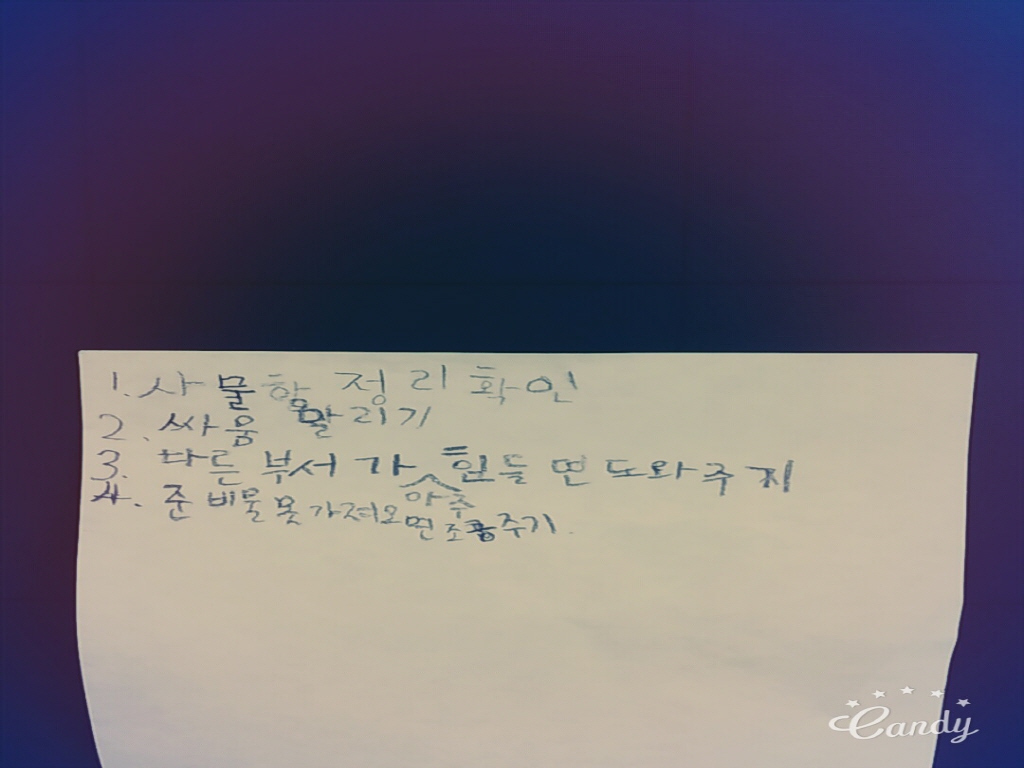 1. 사물함 정리 확인
2. 싸움 말리기
3. 다른 부서가 아주 힘들면 도와주지
4. 준비물 못 가져오면 조금 주기.
Candy